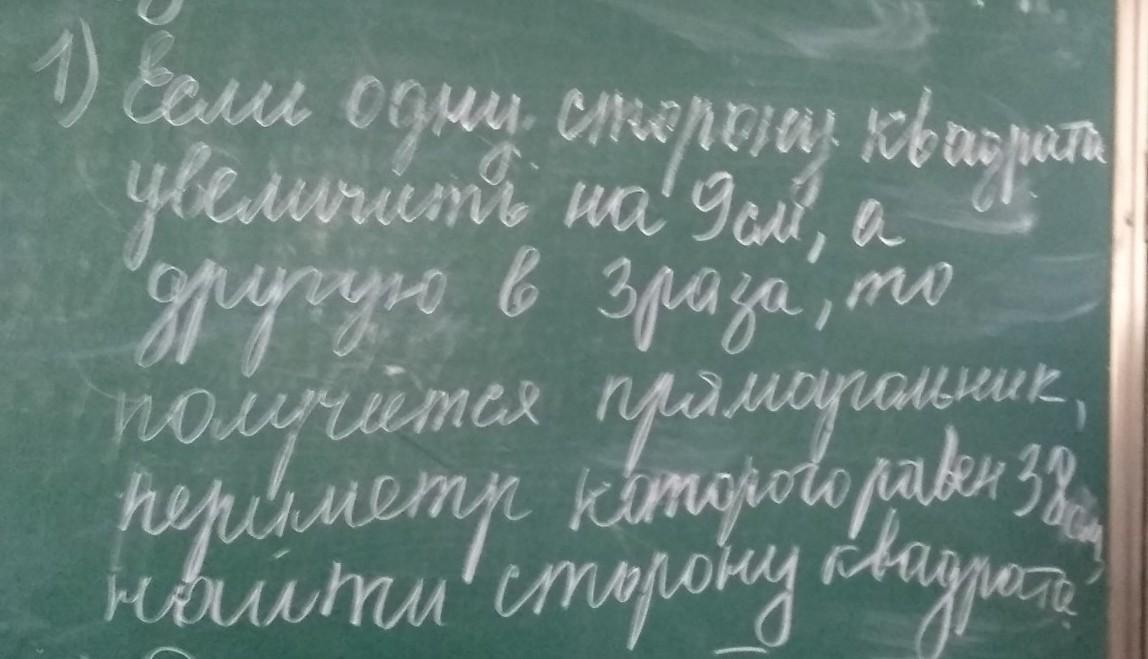 1) Если одну сторону квадрата
увеличить на 9см, а
другую в 3 раза, то
получится прямоугольник,
периметр которого равен 38см,
найти сторону квадрата